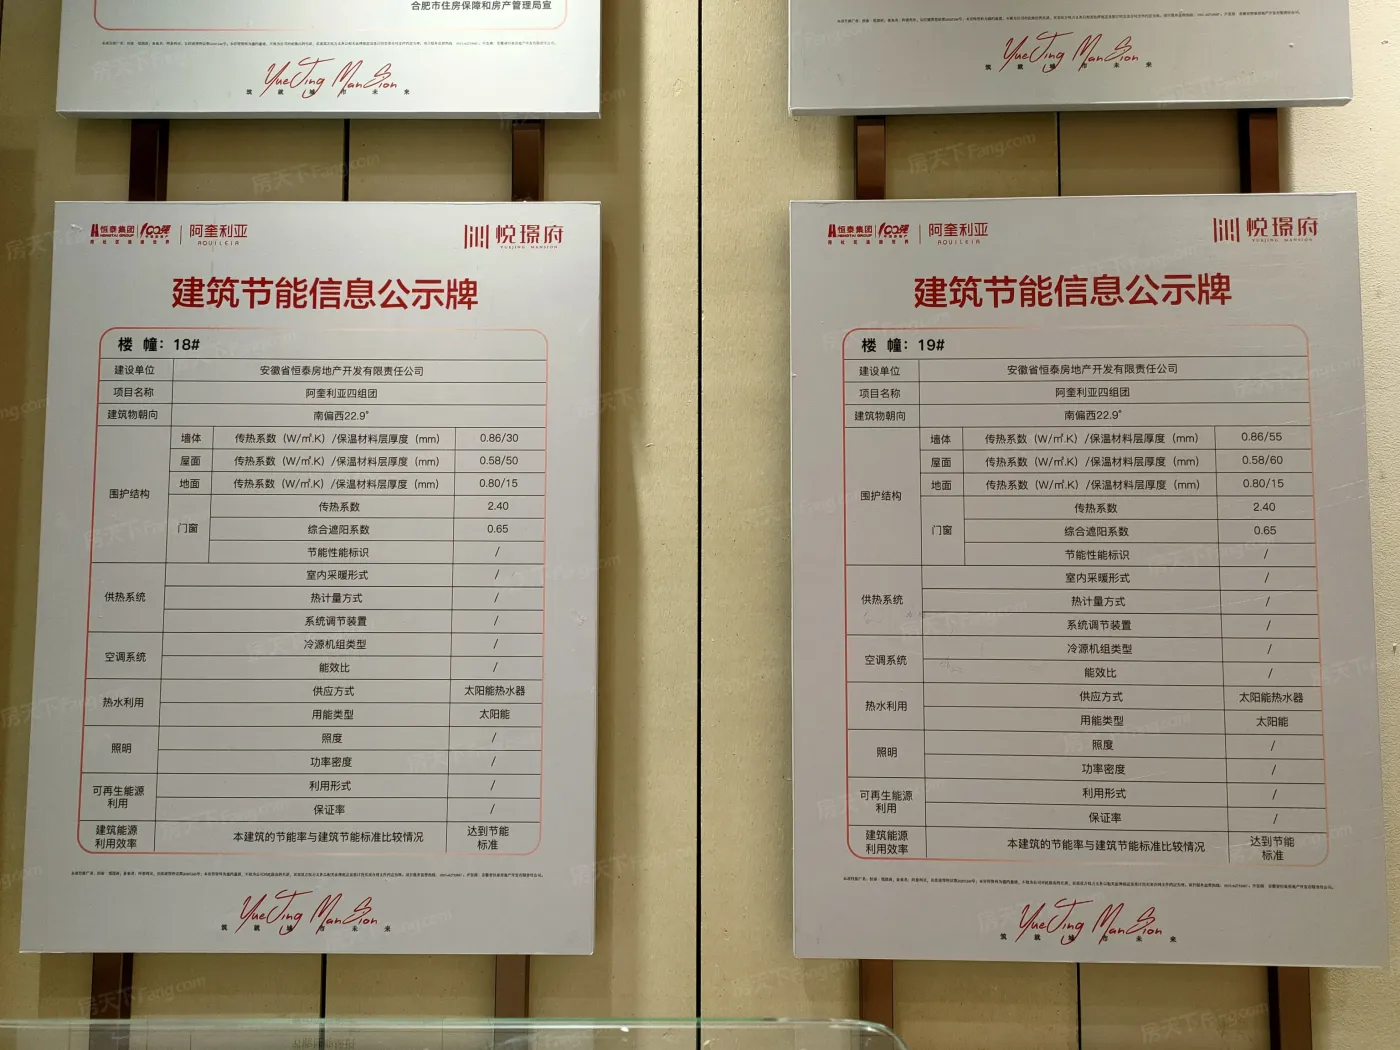 合肥市住房保障和房产管理局宣
YueJing ManSion
筑 就 城 市 未 来
YueJing ManSion
筑 就 城 市 未 来
恒泰集团
HENGTAI GROUP
阿奎利亚
AQUILEIA
悦璟府
YUEJING MANSION
建筑节能信息公示牌
楼 幢：18#
建设单位 安徽省恒泰房地产开发有限责任公司
项目名称 阿奎利亚四组团
建筑物朝向 南偏西22.9°
围护结构
墙体 传热系数（W/㎡.K）/保温材料层厚度（mm） 0.86/30
屋面 传热系数（W/㎡.K）/保温材料层厚度（mm） 0.58/50
地面 传热系数（W/㎡.K）/保温材料层厚度（mm） 0.80/15
门窗
传热系数 2.40
综合遮阳系数 0.65
节能性能标识 /
供热系统
室内采暖形式 /
热计量方式 /
系统调节装置 /
空调系统
冷源机组类型 /
能效比 /
热水利用
供应方式 太阳能热水器
用能类型 太阳能
照明
照度 /
功率密度 /
可再生能源
利用
利用形式 /
保证率 /
建筑能源
利用效率
本建筑的节能率与建筑节能标准比较情况
达到节能
标准
YueJing ManSion
筑 就 城 市 未 来
恒泰集团
HENGTAI GROUP
阿奎利亚
AQUILEIA
悦璟府
YUEJING MANSION
建筑节能信息公示牌
楼 幢：19#
建设单位 安徽省恒泰房地产开发有限责任公司
项目名称 阿奎利亚四组团
建筑物朝向 南偏西22.9°
围护结构
墙体 传热系数（W/㎡.K）/保温材料层厚度（mm） 0.86/55
屋面 传热系数（W/㎡.K）/保温材料层厚度（mm） 0.58/60
地面 传热系数（W/㎡.K）/保温材料层厚度（mm） 0.80/15
门窗
传热系数 2.40
综合遮阳系数 0.65
节能性能标识 /
供热系统
室内采暖形式 /
热计量方式 /
系统调节装置 /
空调系统
冷源机组类型 /
能效比 /
热水利用
供应方式 太阳能热水器
用能类型 太阳能
照明
照度 /
功率密度 /
可再生能源
利用
利用形式 /
保证率 /
建筑能源
利用效率
本建筑的节能率与建筑节能标准比较情况
达到节能
标准
YueJing ManSion
筑 就 城 市 未 来
房天下Fang.com